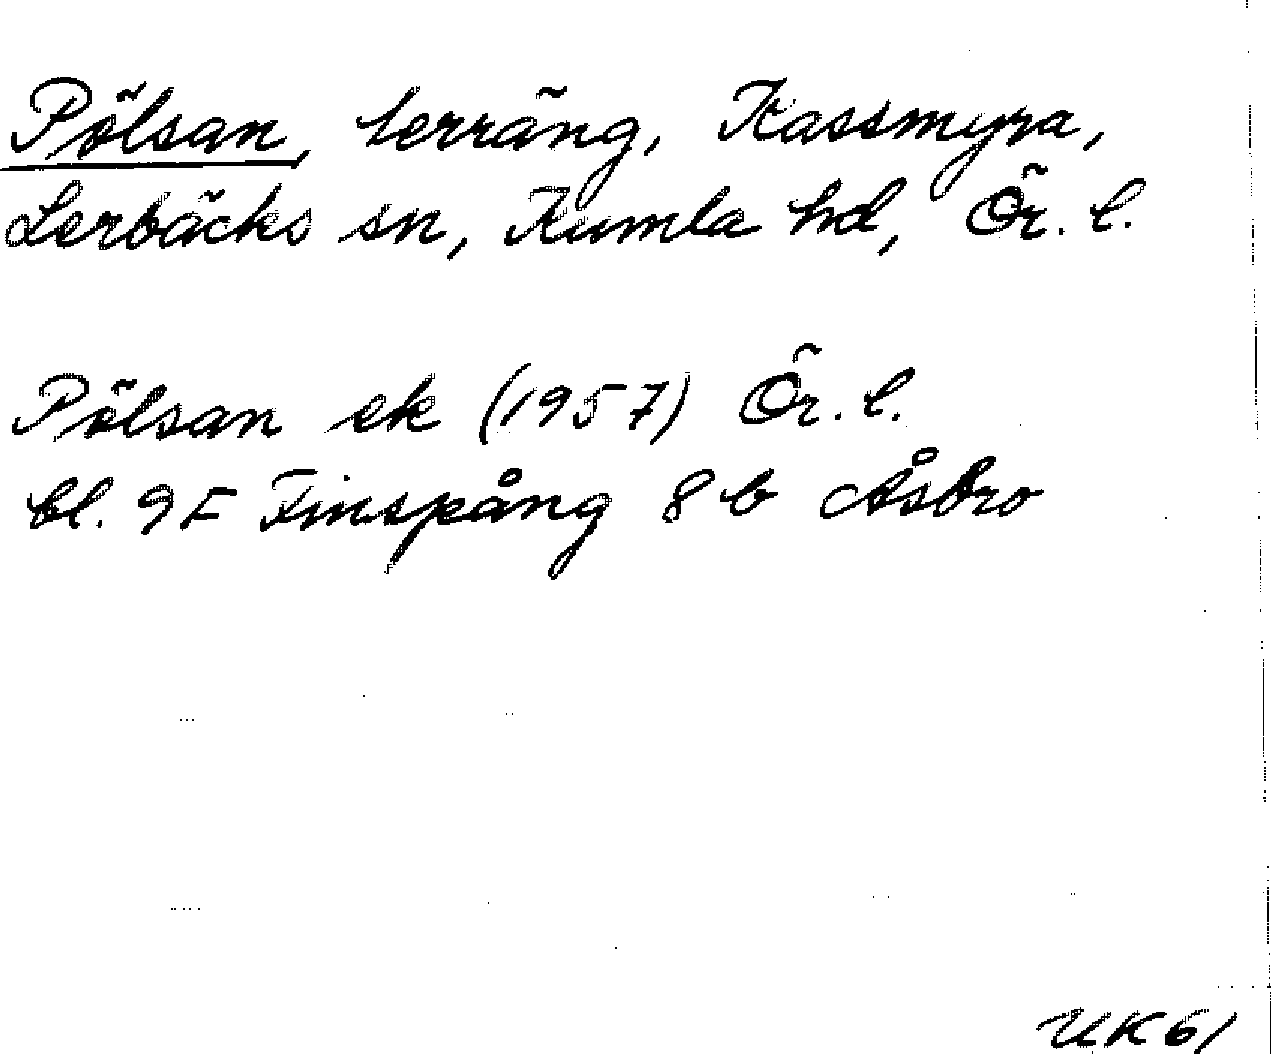 Pölsan, terräng, Kassmyra,
Lerbäcks sn, Kumla hd, Ör. l.
Pölsan ek (1957) Ör. l.
bl. 9F Finspång 8b Åsbro
UK61